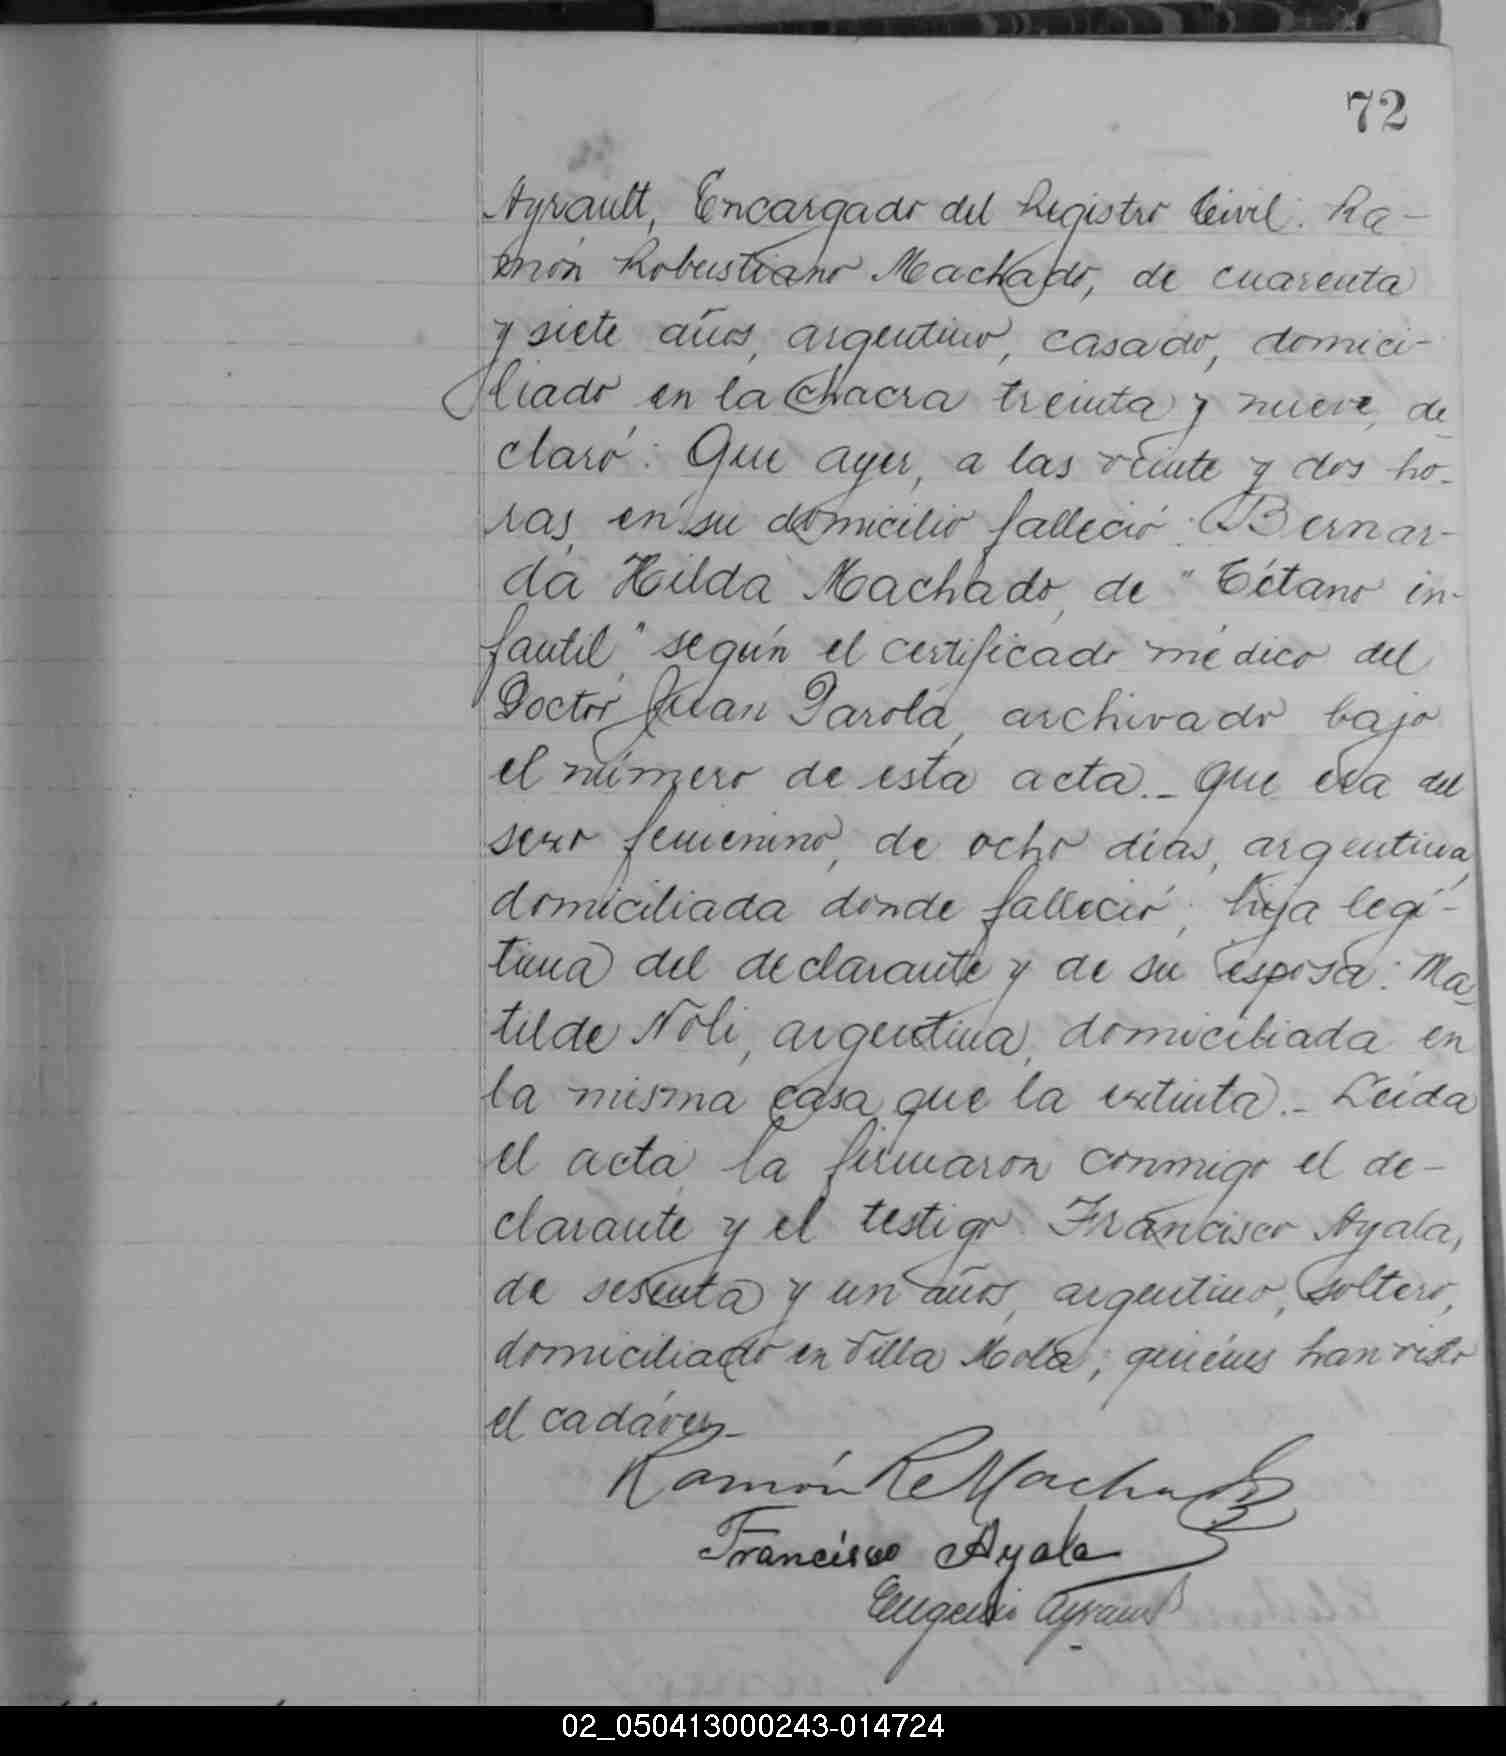 72
Ayrault, Encargado del Registro Civil: Ra-
món Robustiano Machado, de cuarenta
y siete años, argentino, casado, domici-
liado en la chacra treinta y nueve, de
claró: Que ayer, a las veinte y dos ho-
ras, en su domicilio falleció: Bernar-
da Hilda Machado, de "Tétano in-
fantil", según el certificado médico del
Doctor Juan Parola, archivado bajo
el número de esta acta._ Que era del
sexo femenino, de ocho días, argentina,
domiciliada donde falleció; hija legí-
tima del declarante y de su esposa: Ma-
tilde Noli, argentina, domiciliada en
la misma casa que la extinta._ Leída
el acta, la firmaron conmigo el de-
clarante y el testigo Francisco Ayala,
de sesenta y un años, argentino, soltero,
domiciliado en Villa Mola; quiénes han visto
el cadáver_
Ramón R. Machado
Francisco Ayala
Eugenio Ayrault
02_050413000243-014724